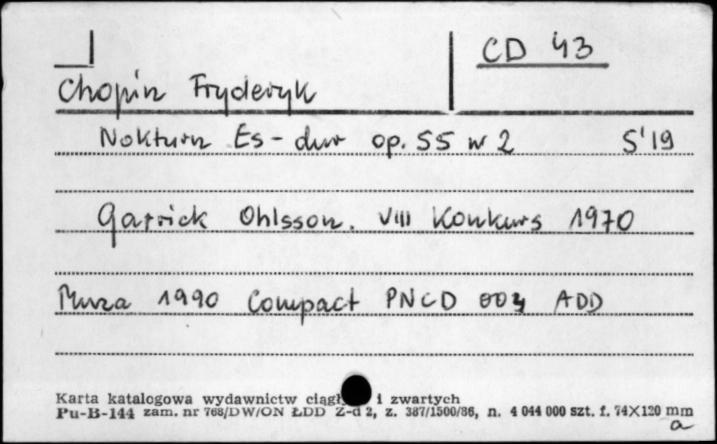 CD 43
Chopin Fryderyk
Nokturn Es-dur op. 55 nr 2 5'19
Garrick Ohlsson. VIII Konkurs 1970
Muza 1990 Compact PNCD 004 ADD
Karta katalogowa wydawnictw ciągł i zwartych
Pu-B-144 zam. nr 768/DW/ON ŁDD Z-d 2, z. 387/1500/86, n. 4 044 000 szt. f. 74X120 mm
a